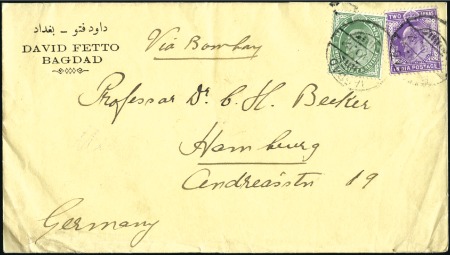 داود فتو - بغداد
DAVID FETTO
BAGDAD
Via Bombay
Professor Dr. C. H. Becker
Hamburg
Andreasstr 19
Germany
TWO ANNAS
INDIA POSTAGE